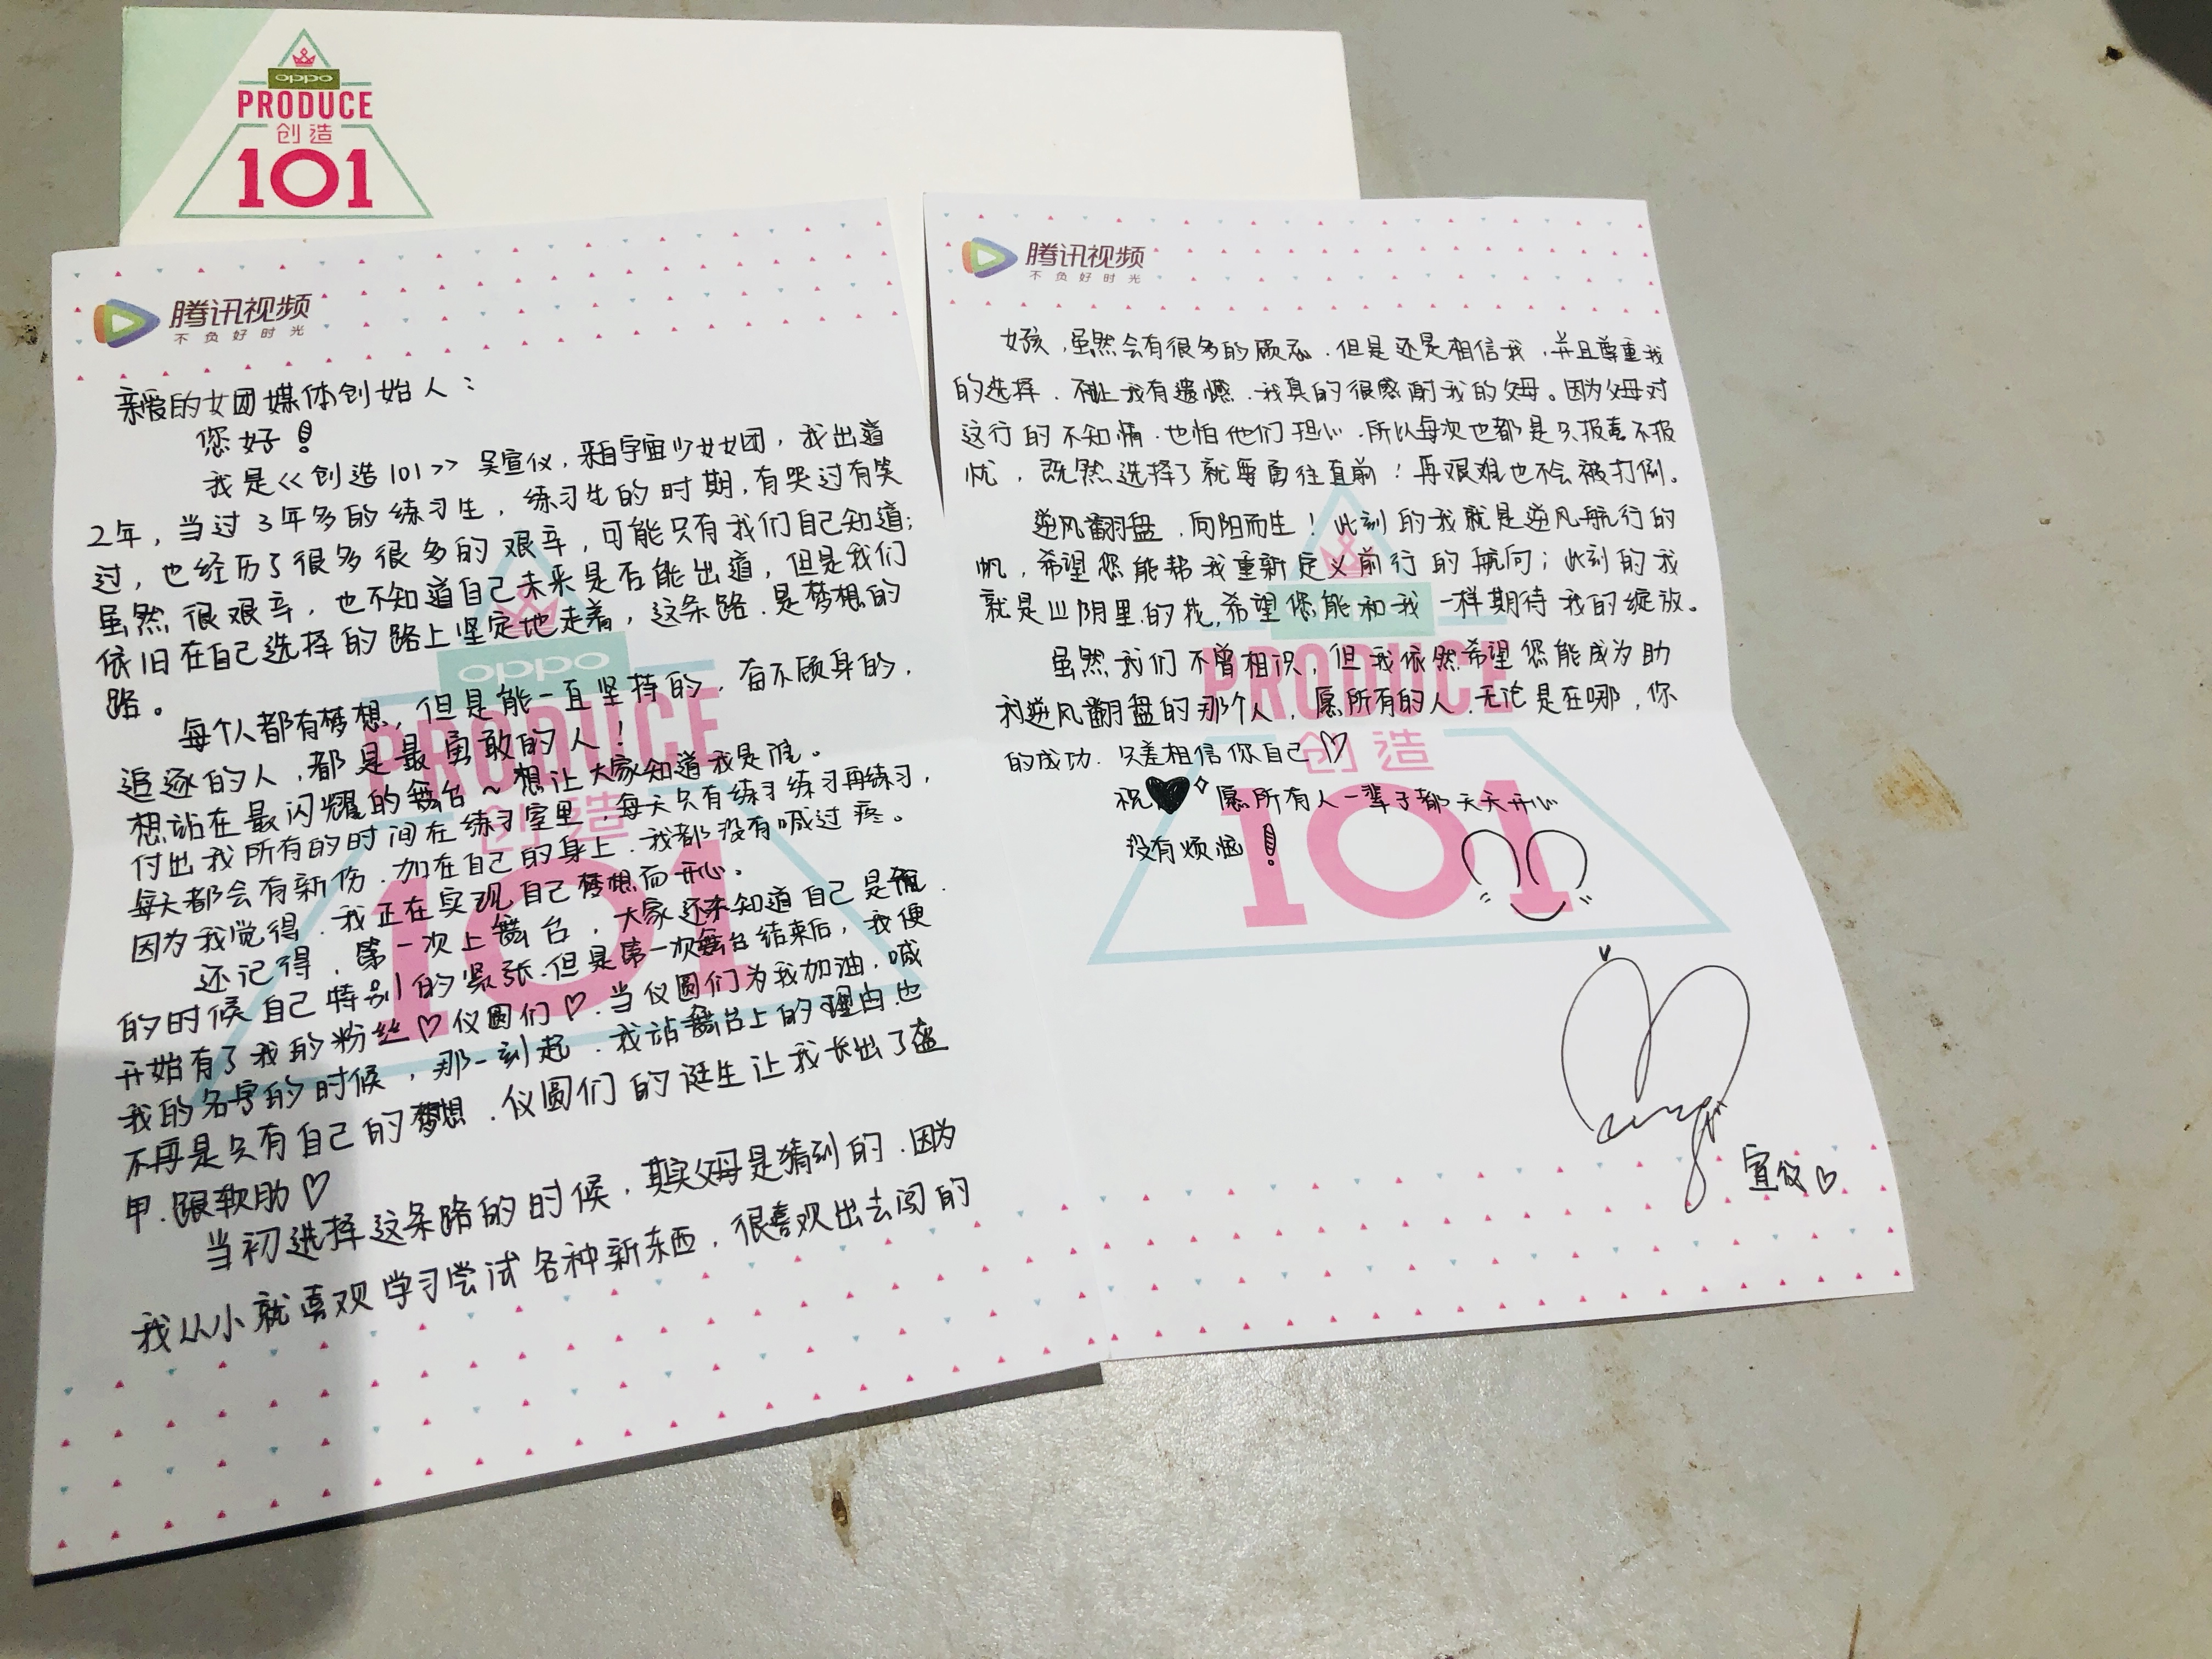 oppo
PRODUCE
创造
101
腾讯视频
不负好时光
亲爱的女团媒体创始人：
您好！
我是<<创造101>>吴宣仪，来自宇宙少女女团，我出道
2年，当过3年多的练习生，练习生的时期，有哭过有笑
过，也经历了很多很多的艰辛，可能只有我们自己知道；
虽然很艰辛，也不知道自己未来是否能出道，但是我们
依旧在自己选择的路上坚定地走着，这条路．是梦想的
路。
每个人都有梦想，但是能一直坚持的，奋不顾身的，
追逐的人，都是最勇敢的人！
想站在最闪耀的舞台～想让大家知道我是谁。
付出我所有的时间在练习室里，每天只有练习练习再练习，
每天都会有新伤．加在自己的身上．我都没有喊过疼。
因为我觉得．我正在实现自己梦想而开心。
还记得，第一次上舞台，大家还未知道自己是谁．
的时候自己特别的紧张．但是第一次舞台结束后，我便
开始有了我的粉丝♡仪圆们♡．当仪圆们为我加油，喊
我的名字的时候，那一刻起．我站舞台上的理由．也
不再是只有自己的梦想．仪圆们的诞生让我长出了盔
甲．跟软肋♡
当初选择这条路的时候，其实父母是猜到的．因为
我从小就喜欢学习尝试各种新东西，很喜欢出去闯的
oppo
PRODUCE
创造
101
腾讯视频
不负好时光
女孩，虽然会有很多的顾忌．但是还是相信我，并且尊重我
的选择．不让我有遗憾．我真的很感谢我的父母。因为父母对
这行的不知情．也怕他们担心．所以每次也都是只报喜不报
忧，既然选择了就要勇往直前！再艰难也不会被打倒。
逆风翻盘，向阳而生！此刻的我就是逆风航行的
帆，希望您能帮我重新定义前行的航向；此刻的我
就是山阴里的花，希望您能和我一样期待我的绽放。
虽然我们不曾相识，但我依然希望您能成为助
我逆风翻盘的那个人，愿所有的人．无论是在哪，你
的成功．只差相信你自己♡
祝♥愿所有人一辈子都天天开心
没有烦恼！
宣仪♡
PRODUCE
创造
101